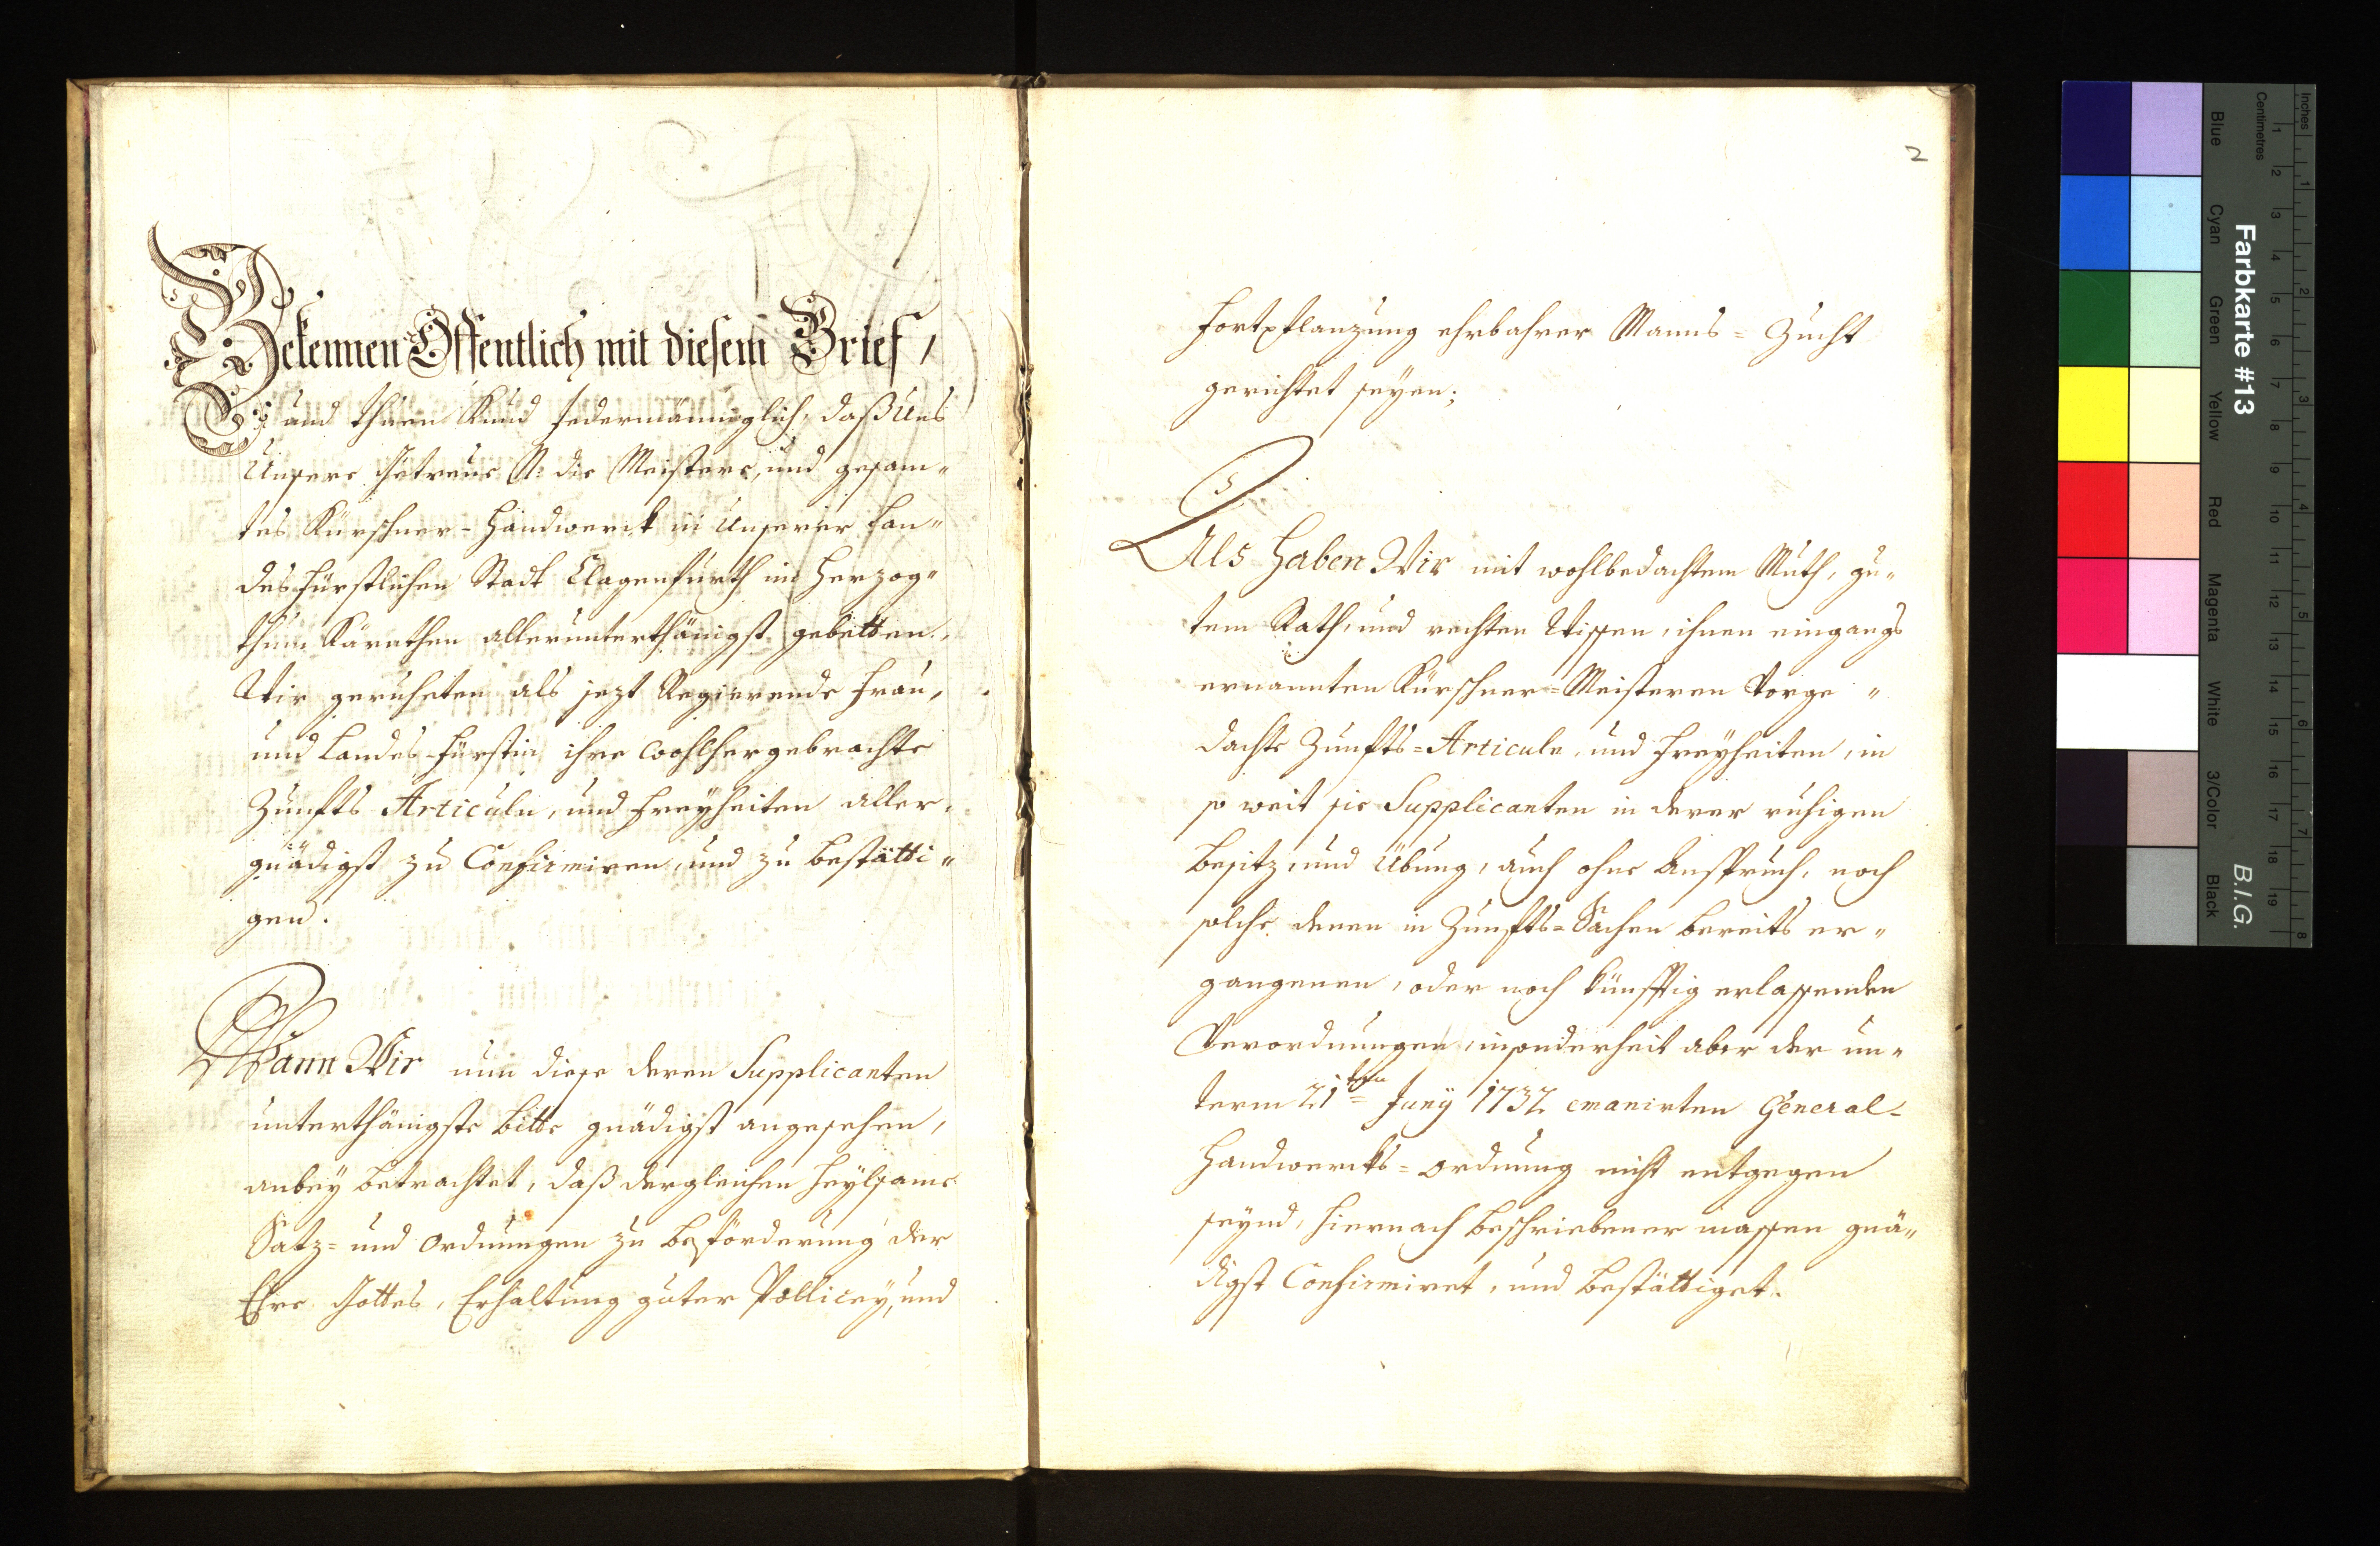 Bekennen Offentlich mit diesem Brief,
und thuen Kund jedermänniglich, daß Uns
Unsere Getreue N: die Meistere, und gesam„
tes Kürschner-Handwerck in Unserer Lan„
des Fürstlichen Stadt Clagenfurth im Herzog„
thum Kärnthen allerunterthänigst gebetten.,
Wir geruheten als jezt Regierende Frau,
und Landes-Fürstin, ihre wohlhergebrachte
Zunffts Articuln, und Freyheiten aller„
gnädigst zu Confirmiren, und zu bestätti„
gen.
Wann Wir nun diese deren Supplicanten
unterthänigste bitte gnädigst angesehen,
anbey betrachtet, daß dergleichen heylsame
Satz= und Ordnungen zu beförderung der
Ehre Gottes, Erhaltung guter Pollicey, und
2
Fortpflanzung ehrbahrer Manns=Zucht
gerichtet seyen;
Als Haben Wir mit wohlbedachtem Muth, gu„
tem Rath, und rechten Wissen, ihnen eingangs
ernannten Kürschner=Meisteren Vorge„
dachte Zunffts=Articuln, und Freyheiten, in
so weit sie Supplicanten in derer ruhigen
Besitz, und Übung, auch ohne Anspruch, noch
solche denen in Zunffts=Sachen bereits er„
gangenen, oder noch künfftig erlassenden
Verordnungen, insonderheit aber der un„
term 21ten Juny 1732 emanirten General-
Handwercks=Ordnung nicht entgegen
seynd, hiernach beschriebener massen gnä„
digst Confirmiret, und bestättiget.
Inches
Centimetres
Farbkarte #13
B.I.G.
Blue
Cyan
Green
Yellow
Red
Magenta
White
3/Color
Black
1 2 3 4 5 6 7 8 9 10 11 12 13 14 15 16 17 18 19
1 2 3 4 5 6 7 8